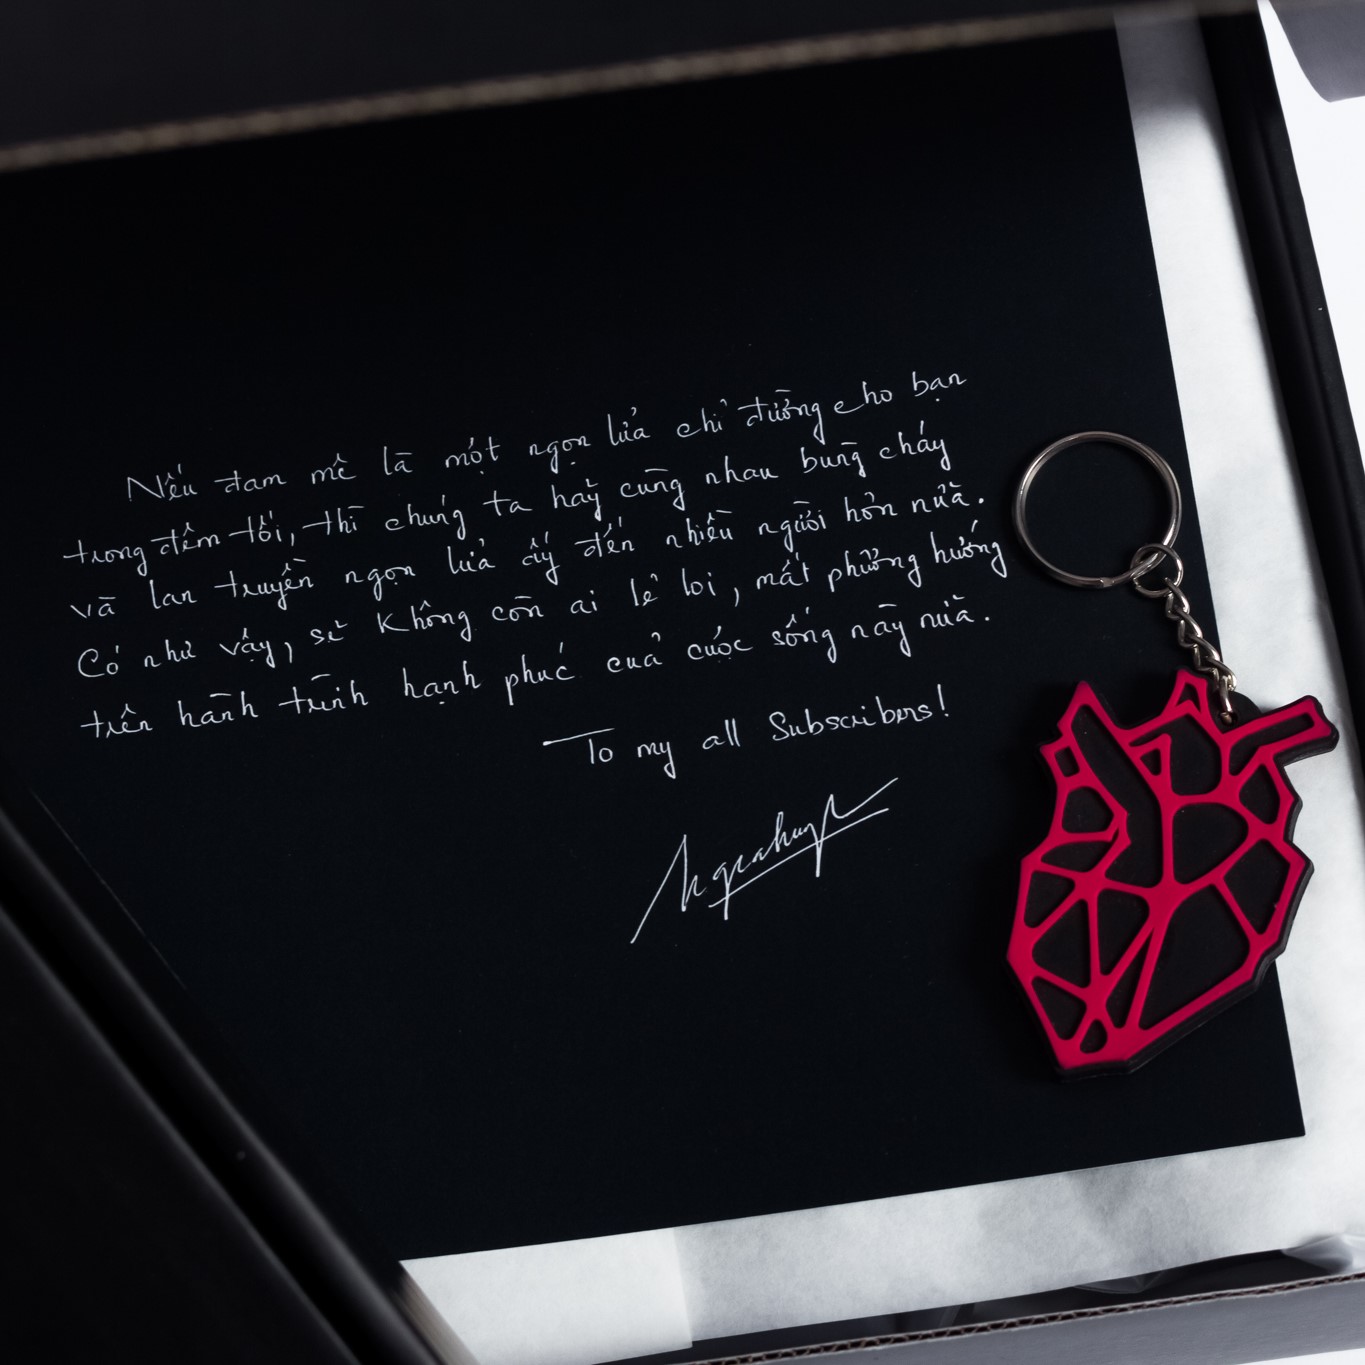 Nếu đam mê là một ngọn lửa chỉ đường cho bạn
trong đêm tối, thì chúng ta hãy cùng nhau bùng cháy
và lan truyền ngọn lửa ấy đến nhiều người hơn nữa.
Có như vậy, sẽ không còn ai lẻ loi, mất phương hướng
trên hành trình hạnh phúc của cuộc sống này nữa.
To my all Subscribers!